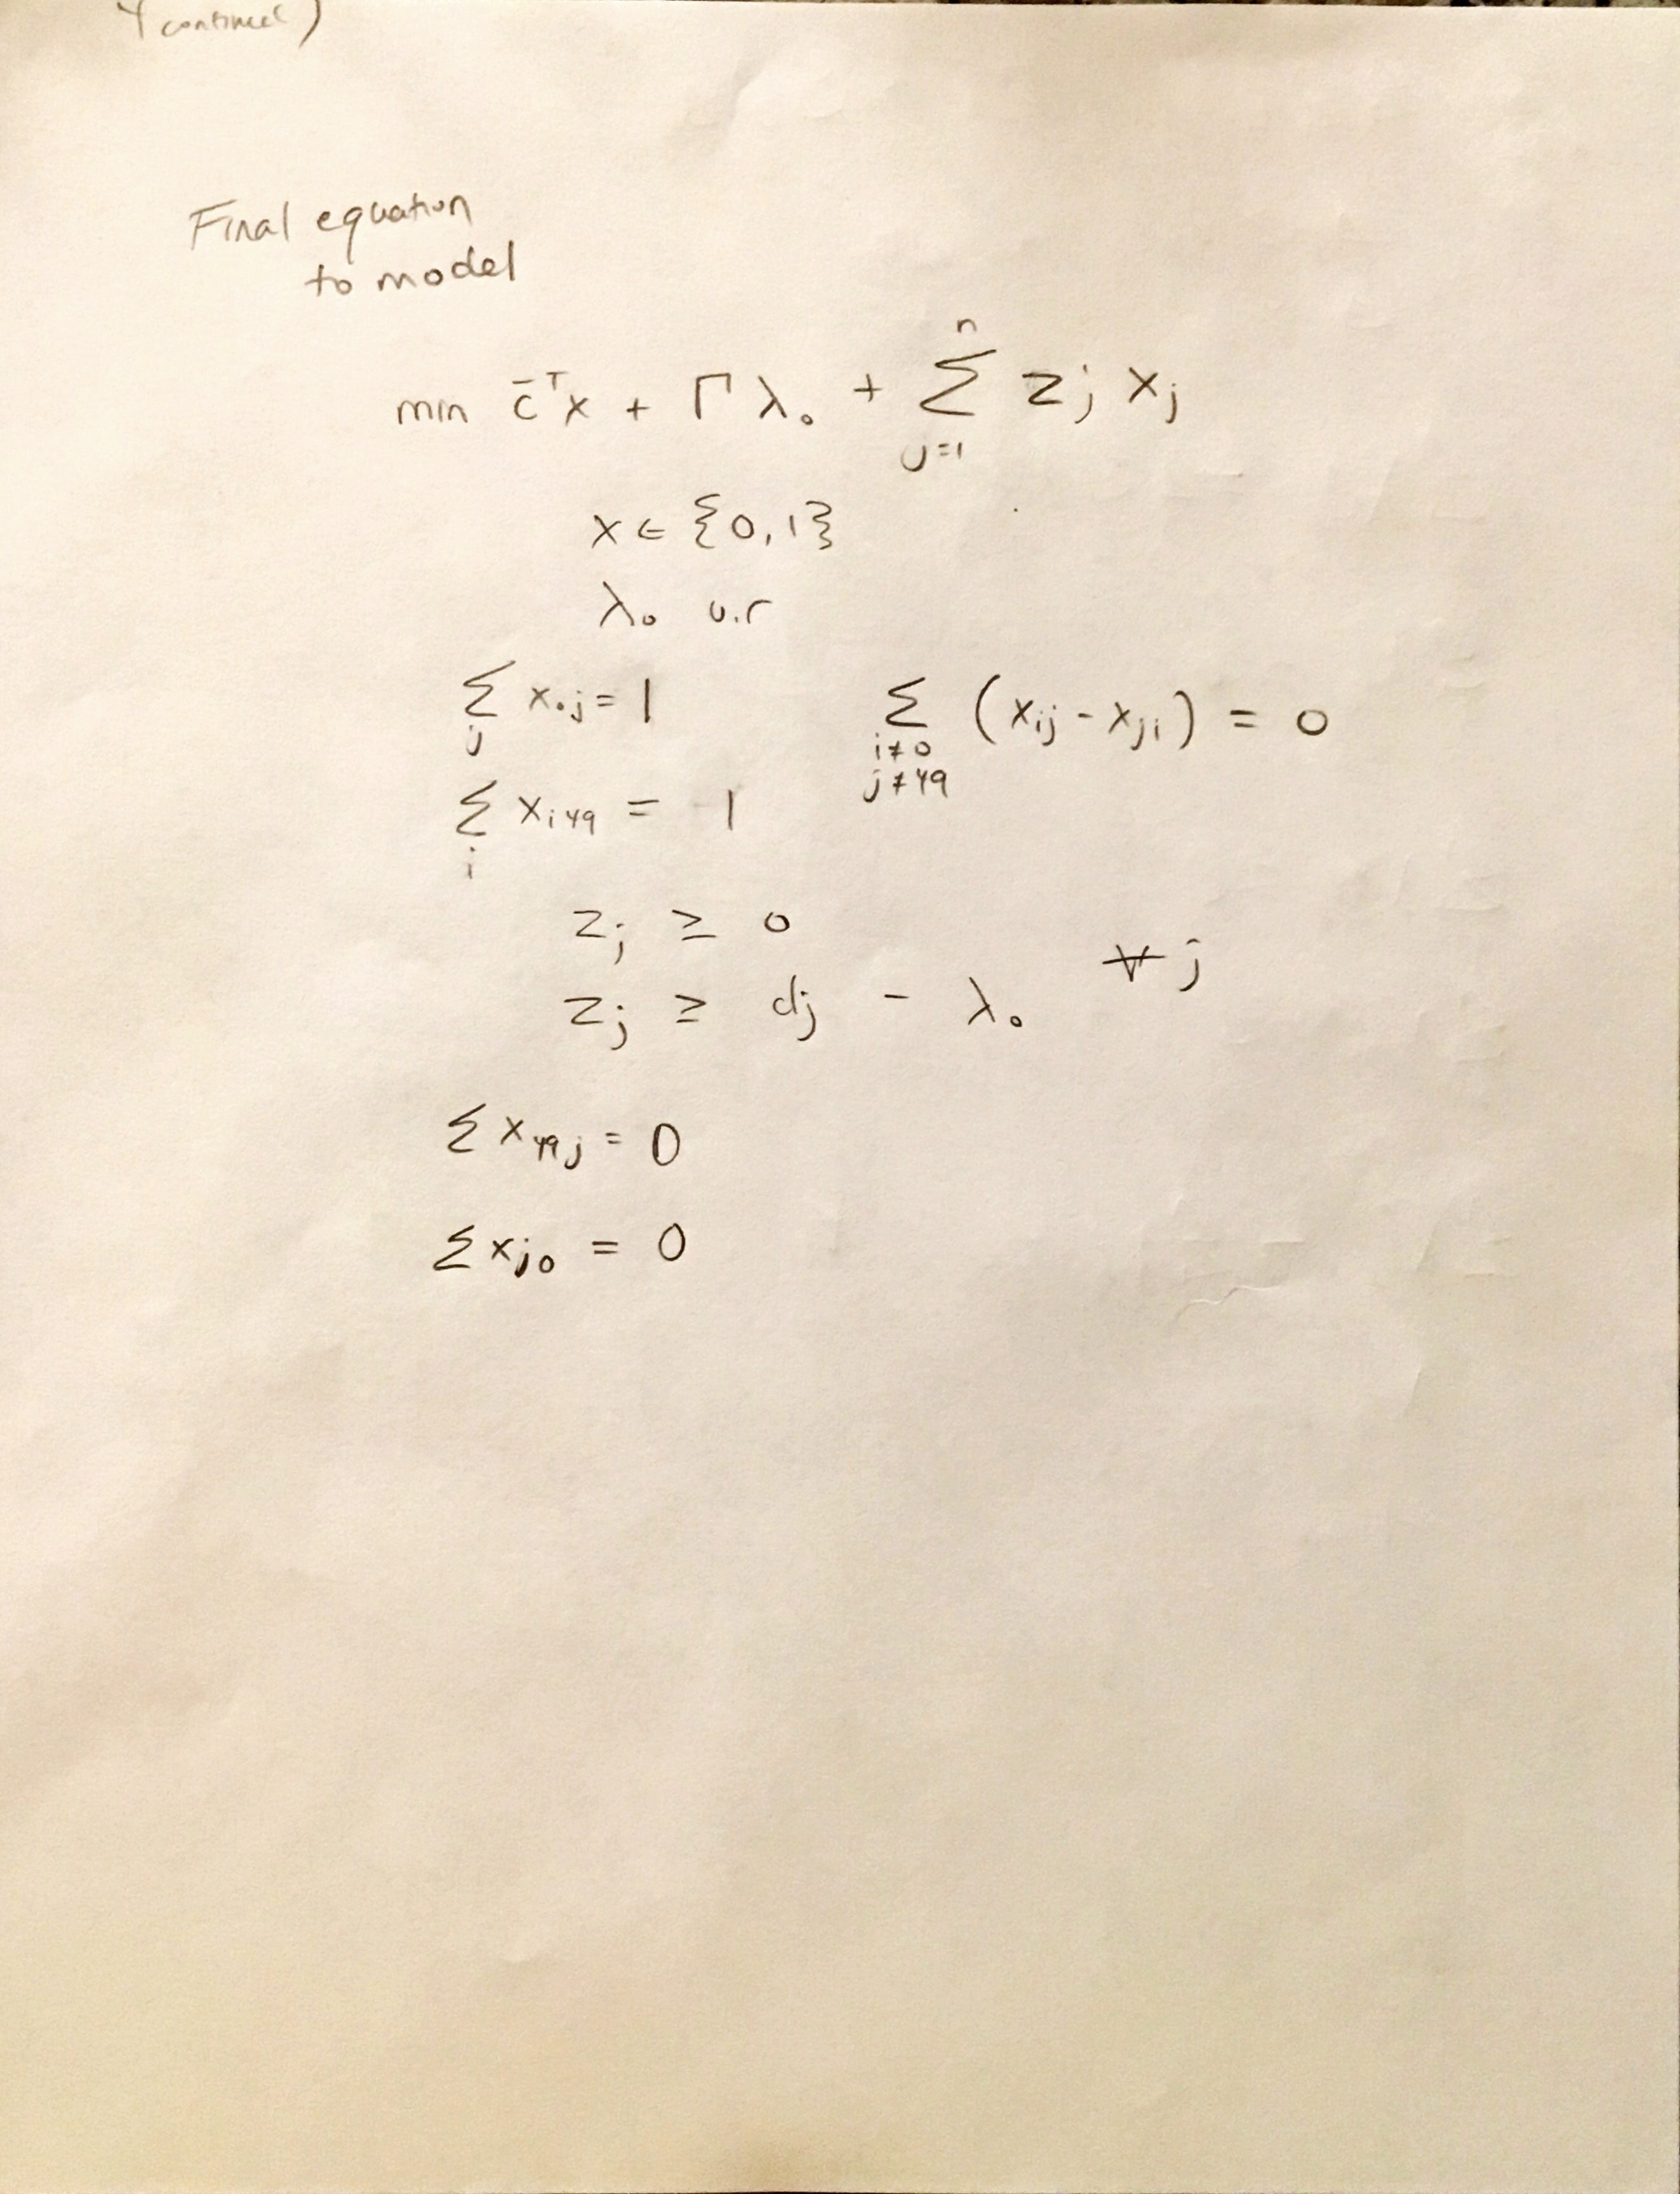 continued)
Final equation
to model
min c̄ᵀx + Γλ₀ + Σ_{j=1}^{n} z_j x_j
x ∈ {0,1}
λ₀ u.r
Σ_j x₀j = 1    Σ_{i≠0, j≠49} (x_ij - x_ji) = 0
Σ_i x_i49 = 1
z_j ≥ 0
z_j ≥ d_j - λ₀    ∀ j
Σ x_49j = 0
Σ x_j0 = 0